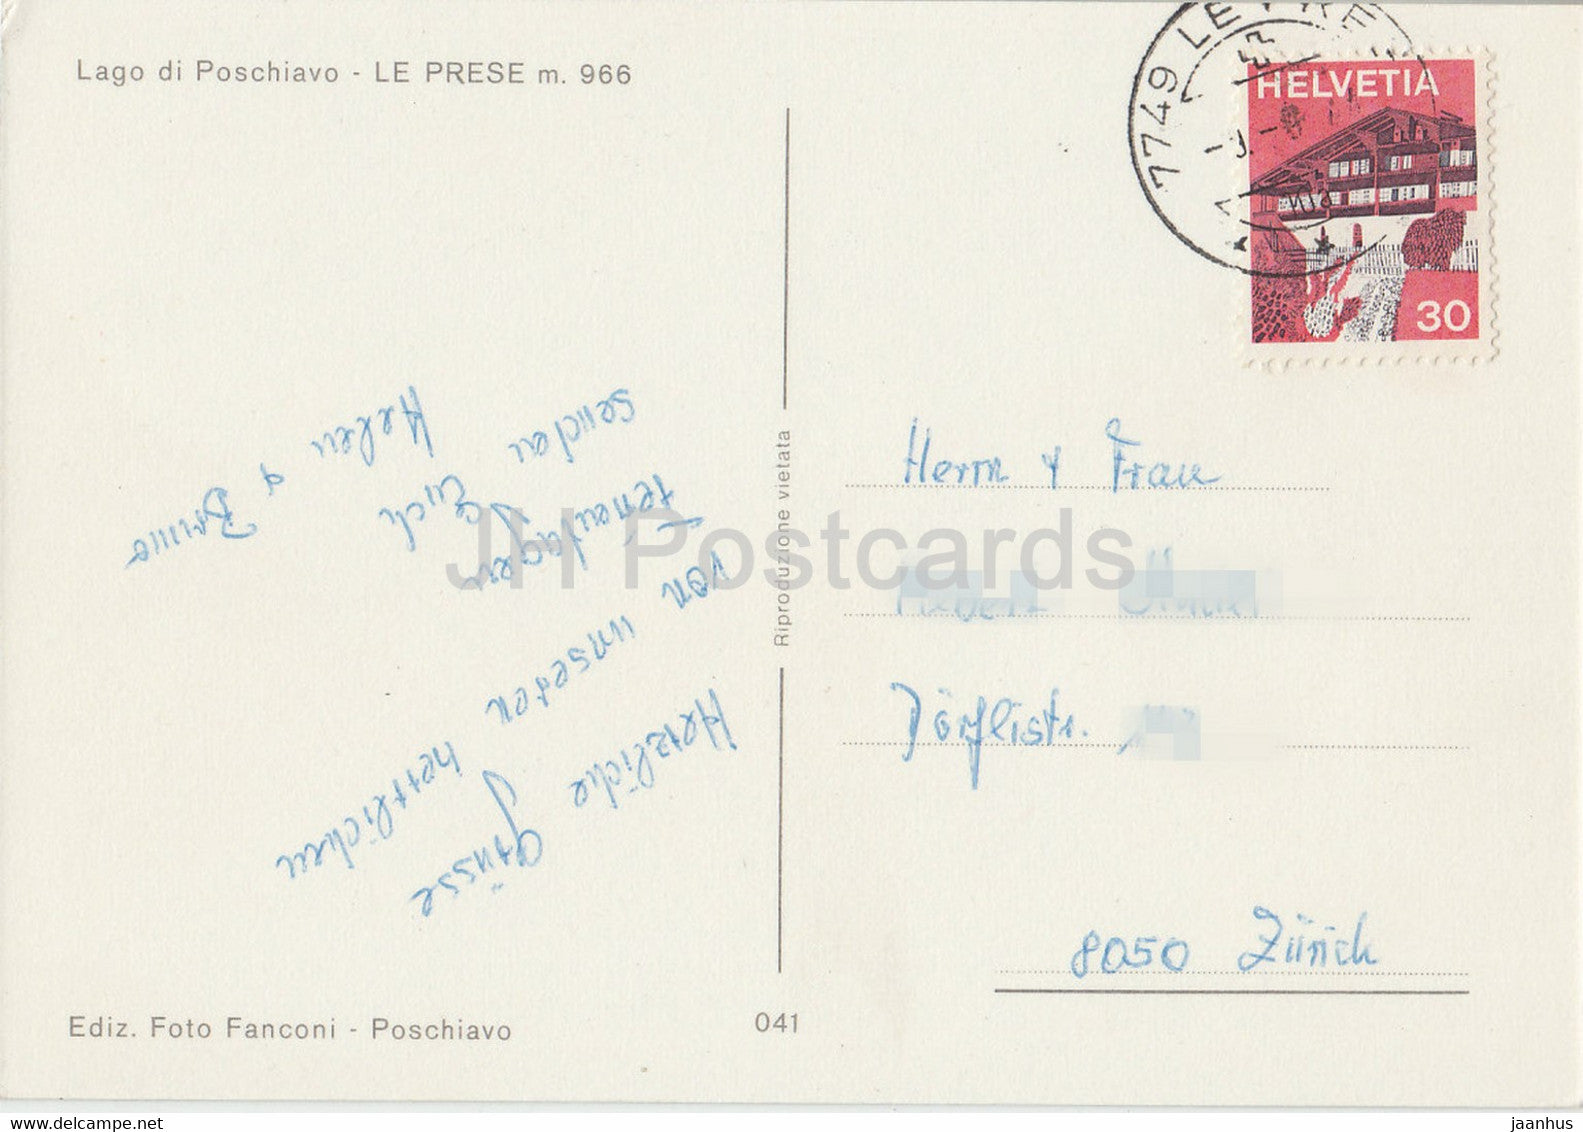 Lago di Poschiavo - LE PRESE m. 966
7749 LE PRESE
HELVETIA
30
Herzliche Grüsse
von unseren herrlichen
Ferientagen
senden Euch
Helen & Bruno
Riproduzione vietata
Herrn & Frau
Dörflistr.
8050 Zürich
Ediz. Foto Fanconi - Poschiavo
041
JH Postcards
www.delcampe.net
jaanhus